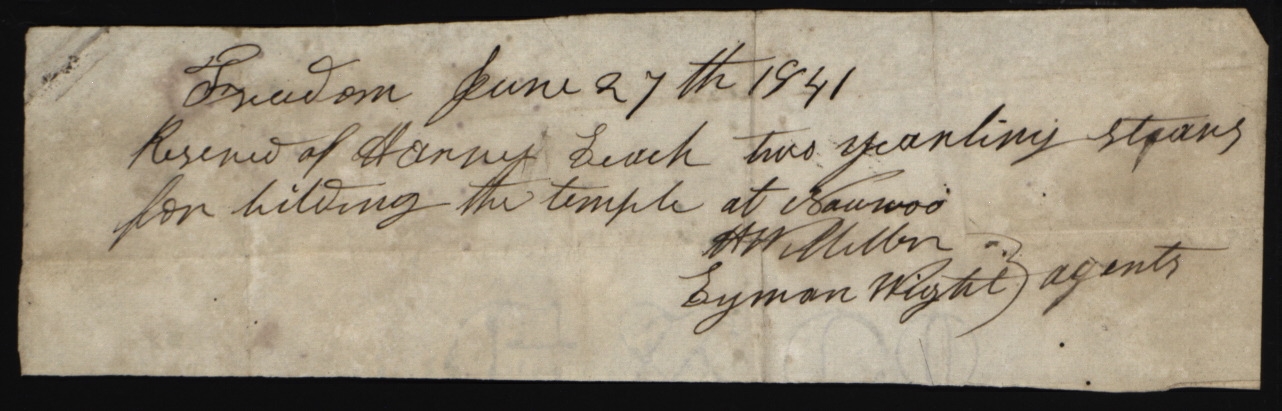 Freedom June 27th 1841
Reseved of Harvey Leach two yearling stears
for bilding the temple at Nauvoo
H W Miller
Lyman Wight } agents